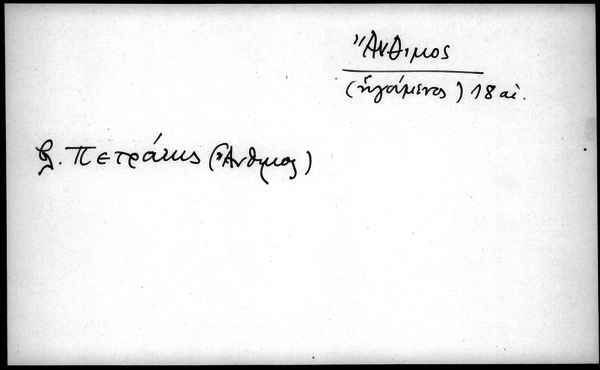 Ἄνθιμος
(ἡγούμενος) 18 αἰ.
βλ. Πετράκης (Ἄνθιμος)